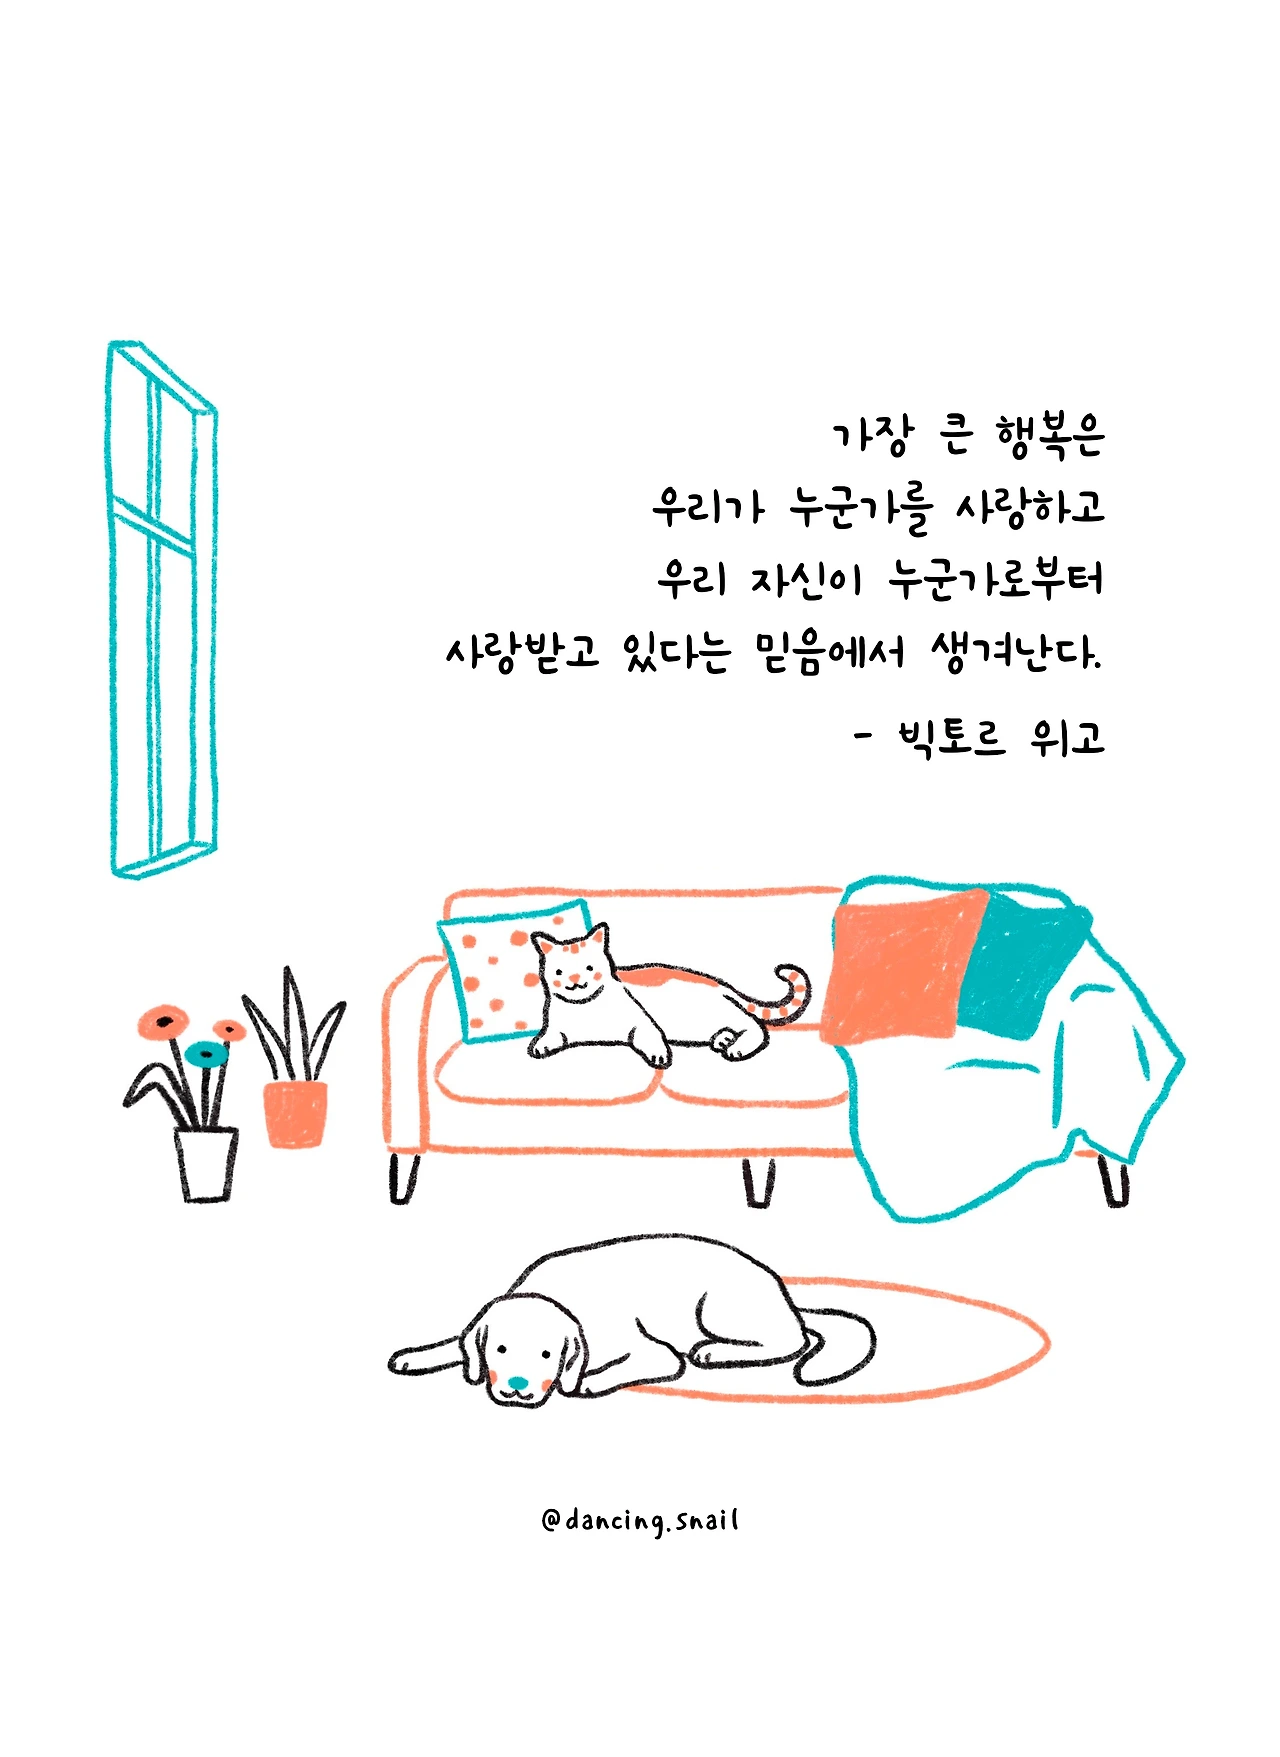 가장 큰 행복은
우리가 누군가를 사랑하고
우리 자신이 누군가로부터
사랑받고 있다는 믿음에서 생겨난다.
- 빅토르 위고
@dancing.snail